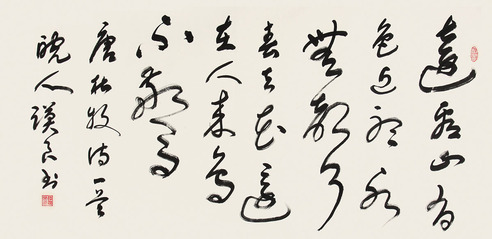 遠看山有
色近聽水
無聲
春去花還
在人来鳥
不驚
唐杜牧诗一首
晓人良书